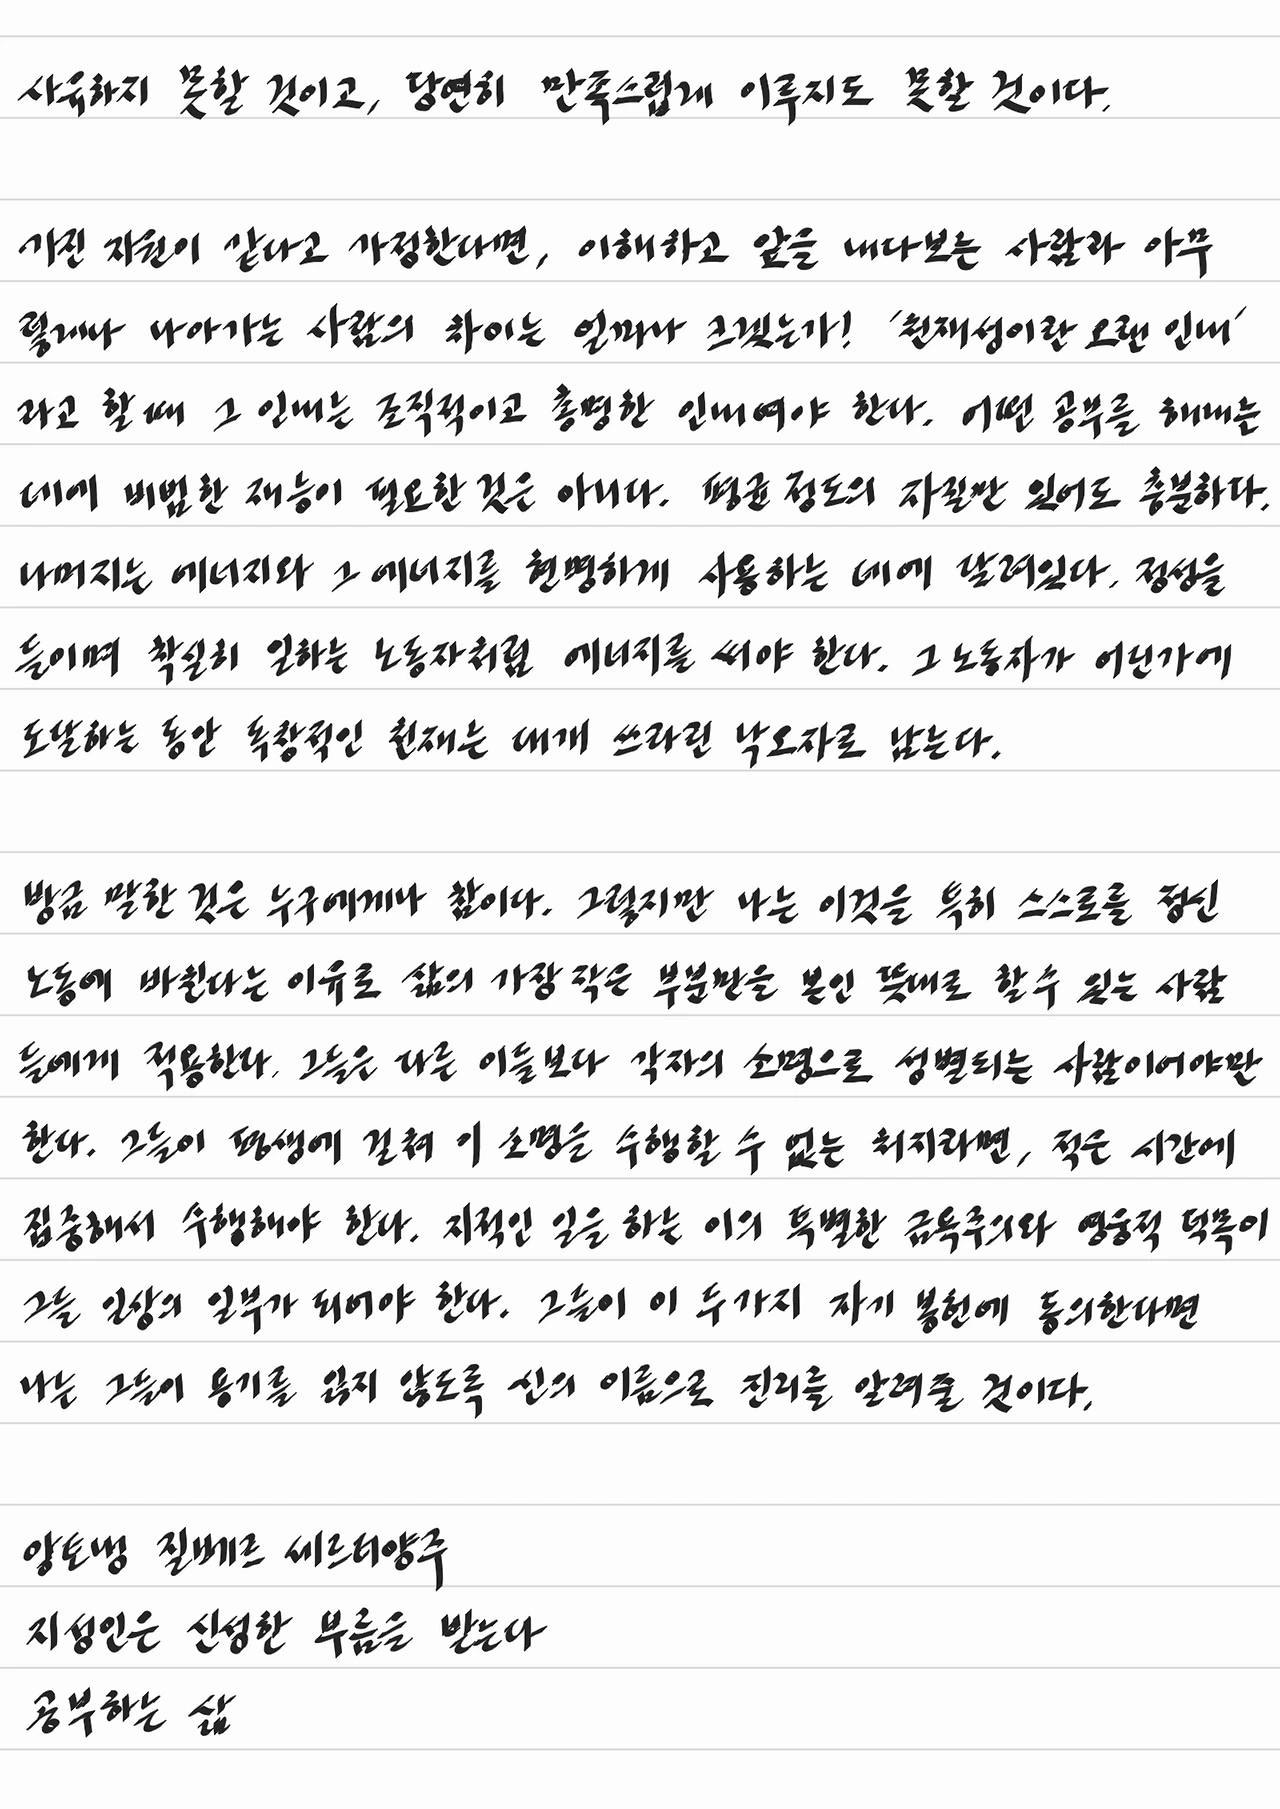 사유하지 못할 것이고, 당연히 만족스럽게 이루지도 못할 것이다.
가진 자원이 같다고 가정한다면, 이해하고 앞을 내다보는 사람과 아무
렇게나 나아가는 사람의 차이는 얼마나 크겠는가! '천재성이란 오랜 인내'
라고 할 때 그 인내는 조직적이고 총명한 인내여야 한다. 어떤 공부를 해내는
데에 비범한 재능이 필요한 것은 아니다. 평균 정도의 자질만 있어도 충분하다.
나머지는 에너지와 그 에너지를 현명하게 사용하는 데에 달려있다. 정성을
들이며 착실히 일하는 노동자처럼 에너지를 써야 한다. 그 노동자가 어딘가에
도달하는 동안 독창적인 천재는 대개 쓰라린 낙오자로 남는다.
방금 말한 것은 누구에게나 참이다. 그렇지만 나는 이것을 특히 스스로를 정신
노동에 바친다는 이유로 삶의 가장 작은 부분만을 본인 뜻대로 할 수 있는 사람
들에게 적용한다. 그들은 다른 이들보다 각자의 소명으로 성별되는 사람이어야만
한다. 그들이 평생에 걸쳐 이 소명을 수행할 수 없는 처지라면, 적은 시간에
집중해서 수행해야 한다. 지적인 일을 하는 이의 특별한 금욕주의와 영웅적 덕목이
그들 일상의 일부가 되어야 한다. 그들이 이 두 가지 자기 봉헌에 동의한다면
나는 그들이 용기를 잃지 않도록 신의 이름으로 진리를 알려줄 것이다.
앙토냉 질베르 세르티양주
지성인은 신성한 부름을 받는다
공부하는 삶